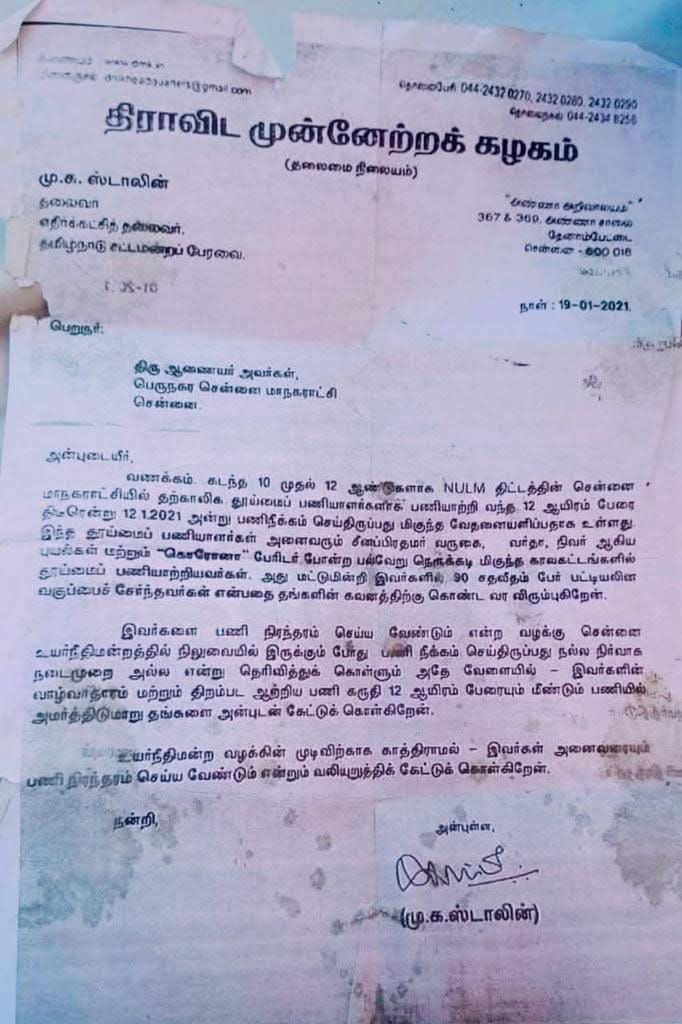 இணையம் : www.dmk.in
மின்னஞ்சல் : dmkheadquarters@gmail.com
தொலைபேசி 044-2432 0270, 2432 0280, 2432 0290
தொலைநகல் 044-2434 8256
திராவிட முன்னேற்றக் கழகம்
(தலைமை நிலையம்)
மு.க. ஸ்டாலின்
தலைவர்
எதிர்க்கட்சித் தலைவர்,
தமிழ்நாடு சட்டமன்றப் பேரவை.
"அண்ணா அறிவாலயம்"
367 & 369, அண்ணா சாலை
தேனாம்பேட்டை
சென்னை - 600 018
நாள் : 19-01-2021.
பெறுநர்:
திரு ஆணையர் அவர்கள்,
பெருநகர சென்னை மாநகராட்சி
சென்னை.
அன்புடையீர்,
வணக்கம். கடந்த 10 முதல் 12 ஆண்டுகளாக NULM திட்டத்தின் சென்னை
மாநகராட்சியில் தற்காலிக தூய்மைப் பணியாளர்களாக பணியாற்றி வந்த 12 ஆயிரம் பேரை
திடீரென்று 12.1.2021 அன்று பணிநீக்கம் செய்திருப்பது மிகுந்த வேதனையளிப்பதாக உள்ளது.
இந்த தூய்மைப் பணியாளர்கள் அனைவரும் சீனப்பிரதமர் வருகை, வர்தா, நிவர் ஆகிய
புயல்கள் மற்றும் "கொரோனா" பேரிடர் போன்ற பல்வேறு நெருக்கடி மிகுந்த காலகட்டங்களில்
தூய்மைப் பணியாற்றியவர்கள். அது மட்டுமின்றி இவர்களில் 90 சதவீதம் பேர் பட்டியலின
வகுப்பைச் சேர்ந்தவர்கள் என்பதை தங்களின் கவனத்திற்கு கொண்ட வர விரும்புகிறேன்.
இவர்களை பணி நிரந்தரம் செய்ய வேண்டும் என்ற வழக்கு சென்னை
உயர்நீதிமன்றத்தில் நிலுவையில் இருக்கும் போது பணி நீக்கம் செய்திருப்பது நல்ல நிர்வாக
நடைமுறை அல்ல என்று தெரிவித்துக் கொள்ளும் அதே வேளையில் – இவர்களின்
வாழ்வாதாரம் மற்றும் திறம்பட ஆற்றிய பணி கருதி 12 ஆயிரம் பேரையும் மீண்டும் பணியில்
அமர்த்திடுமாறு தங்களை அன்புடன் கேட்டுக் கொள்கிறேன்.
உயர்நீதிமன்ற வழக்கின் முடிவிற்காக காத்திராமல் – இவர்கள் அனைவரையும்
பணி நிரந்தரம் செய்ய வேண்டும் என்றும் வலியுறுத்திக் கேட்டுக் கொள்கிறேன்.
நன்றி,
அன்புள்ள,
(மு.க.ஸ்டாலின்)